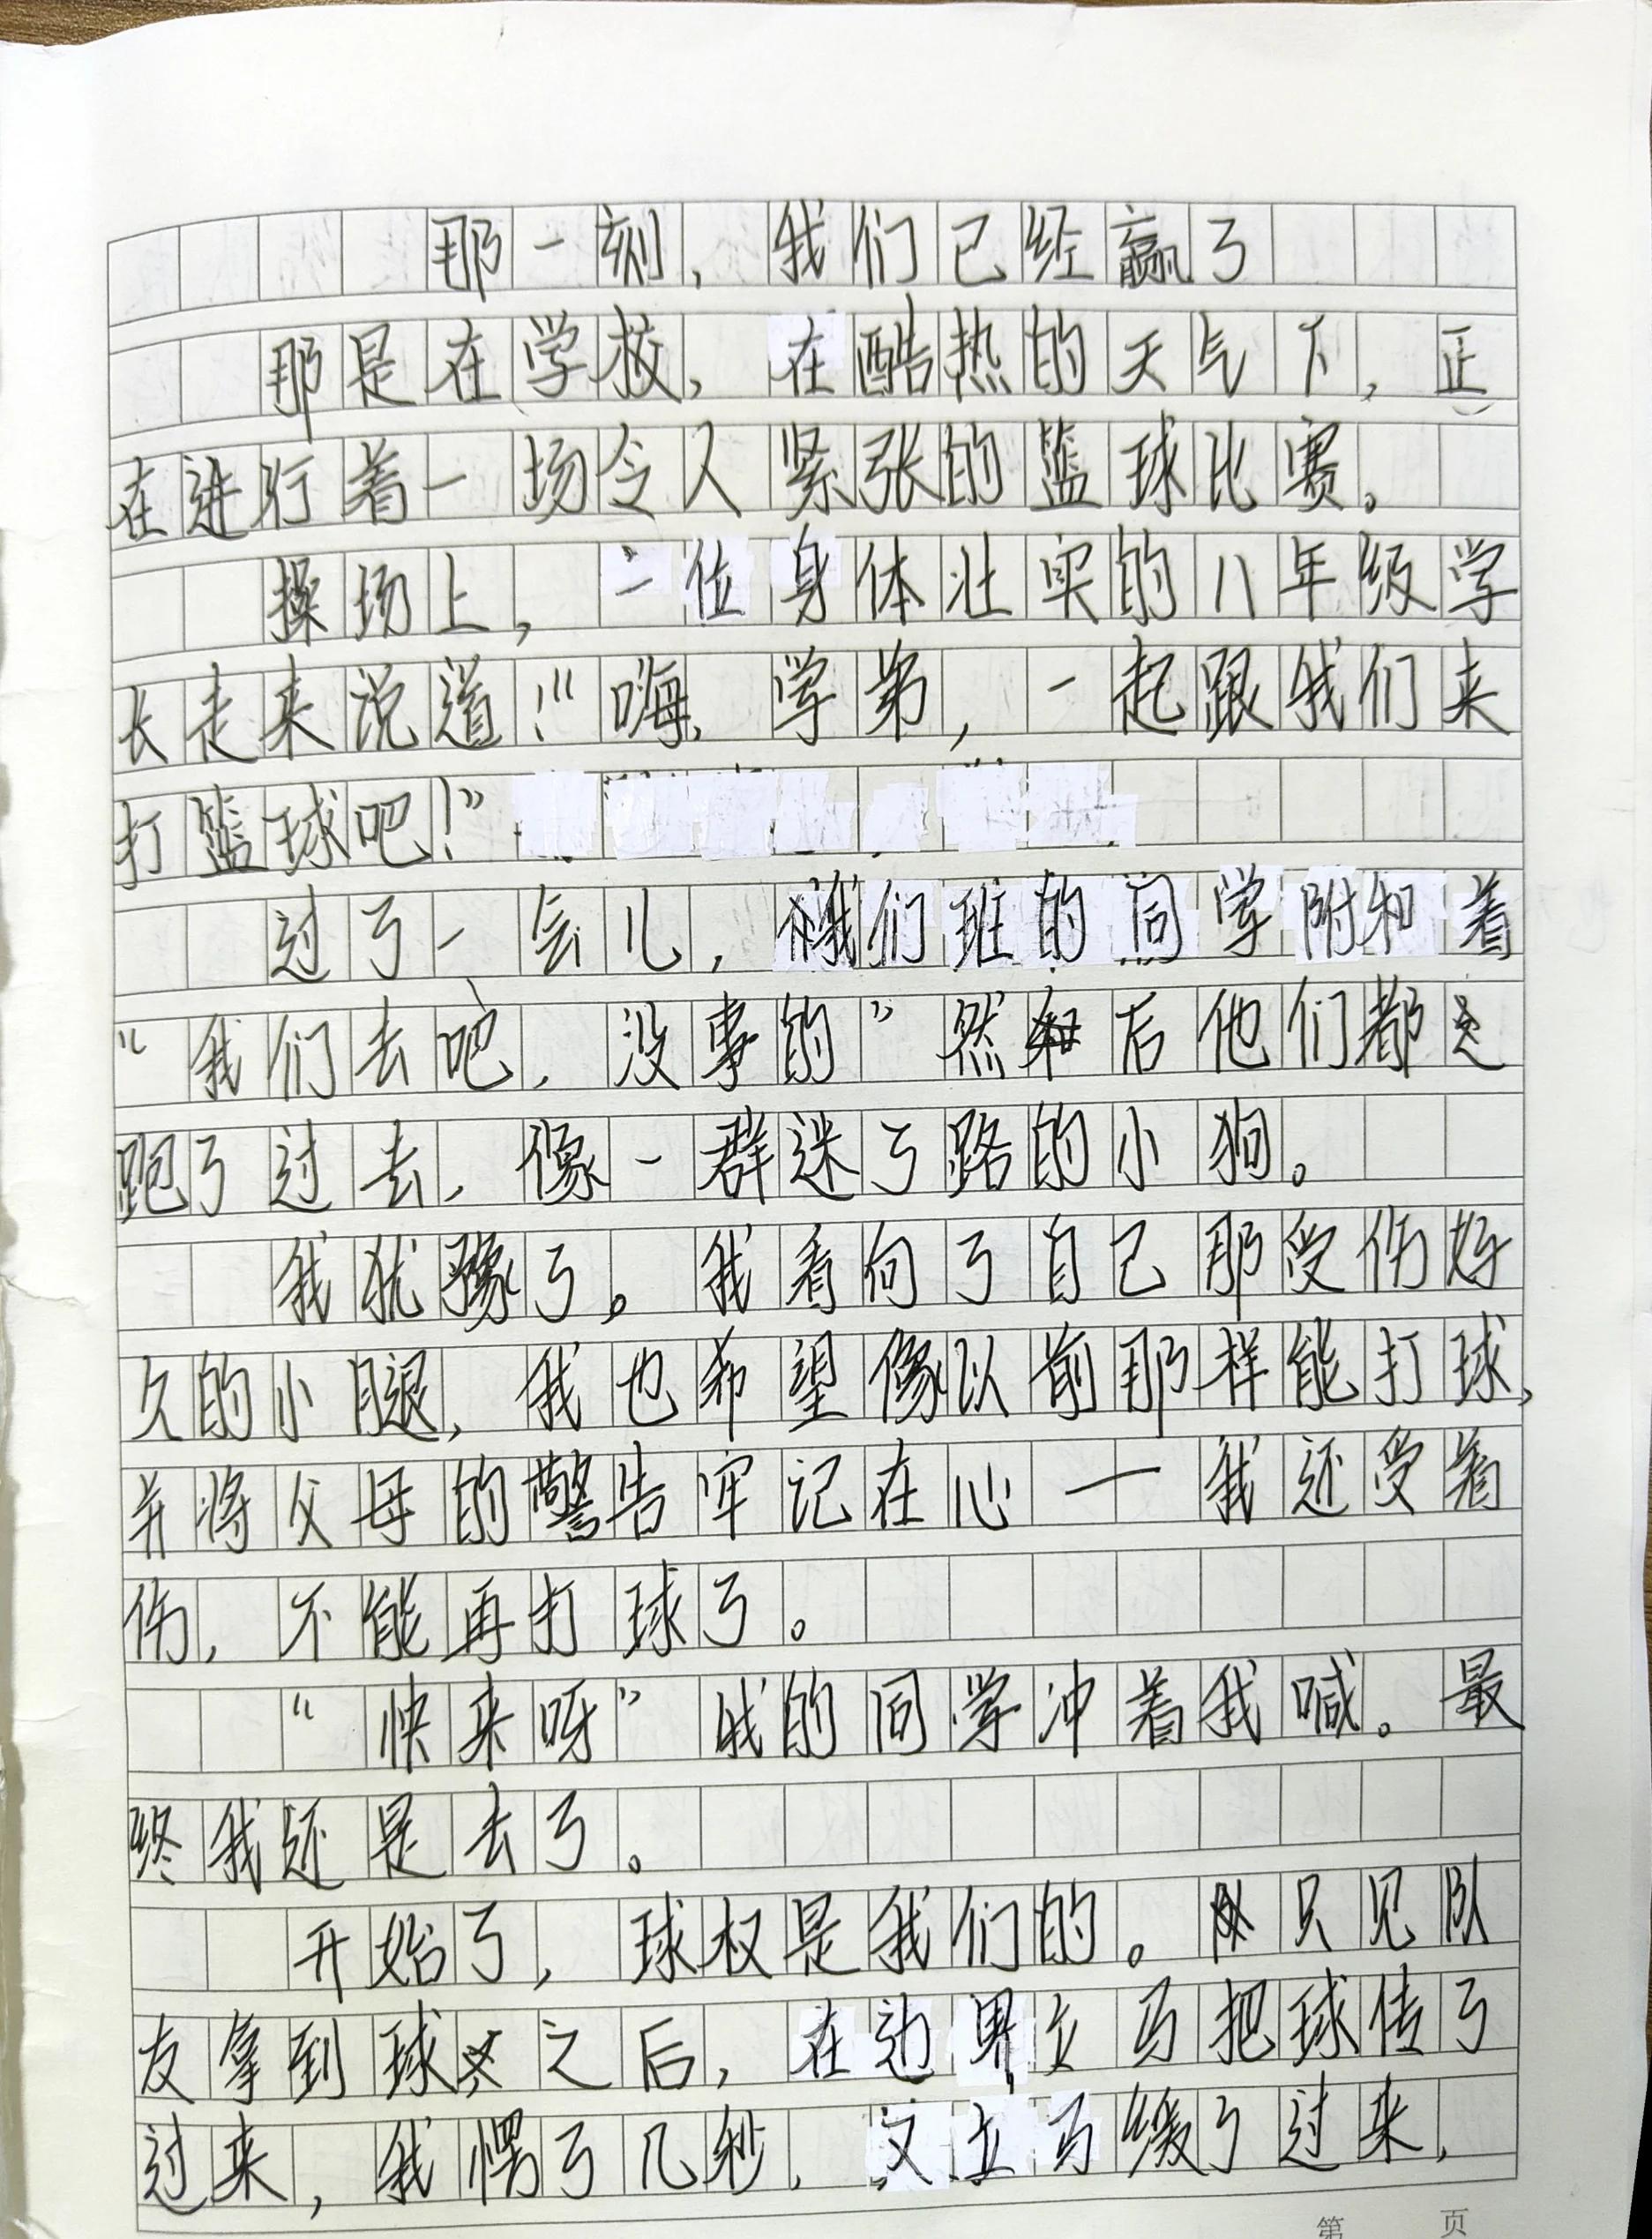 那一刻，我们已经赢了
那是在学校，在酷热的天气下，正
在进行着一场令人紧张的篮球比赛。
操场上，一位身体壮实的八年级学
长走来说道：“嗨，学弟，一起跟我们来
打篮球吧！”
过了一会儿，我们班的同学附和着
“我们去吧，没事的”然后他们都
跑了过去，像一群迷了路的小狗。
我犹豫了。我看向了自己那受伤好
久的小腿，我也希望像以前那样能打球，
并将父母的警告牢记在心—我还受着
伤，不能再打球了。
“快来呀”我的同学冲着我喊。最
终我还是去了。
开始了，球权是我们的。只见队
友拿到球之后，在边界立马把球传了
过来，我愣了几秒，又立马缓了过来，
第 页